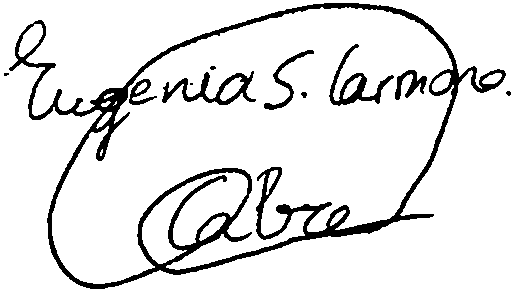 Eugenia S. Carmona.
Obre